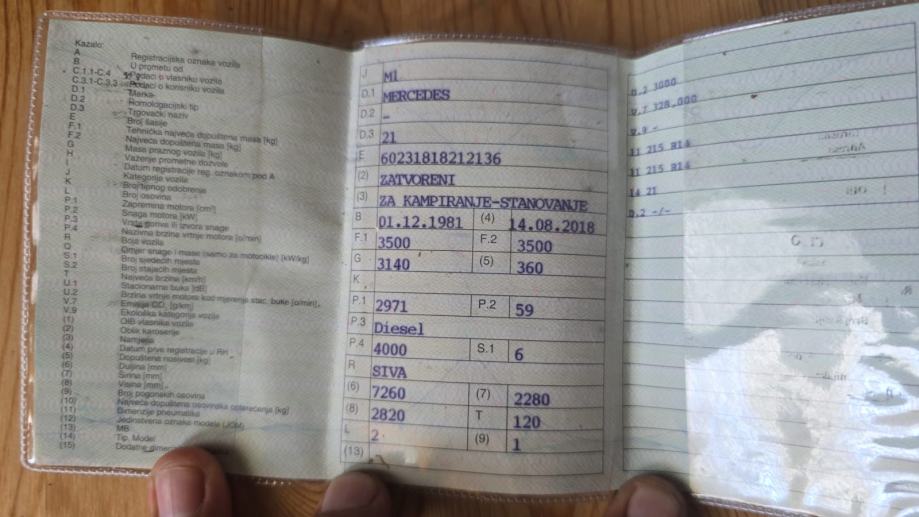 Kazalo:
A Registracijska oznaka vozila
B U prometu od
C.1.1-C.4 Podaci o vlasniku vozila
C.3.1-C.3.3 Podaci o korisniku vozila
D.1 Marka
D.2 Homologacijski tip
D.3 Trgovački naziv
E Broj šasije
F.1 Tehnička najveća dopuštena masa [kg]
F.2 Najveća dopuštena masa [kg]
G Masa praznog vozila [kg]
H Važenje prometne dozvole
I Datum registracije reg. oznakom pod A
J Kategorija vozila
K Broj tipnog odobrenja
L Broj osovina
P.1 Zapremina motora [cm³]
P.2 Snaga motora [kW]
P.3 Vrsta goriva ili izvora snage
P.4 Nazivna brzina vrtnje motora [o/min]
R Boja vozila
Q Omjer snage i mase (samo za motocikle) [kW/kg]
S.1 Broj sjedećih mjesta
S.2 Broj stajaćih mjesta
T Najveća brzina [km/h]
U.1 Stacionarna buka [dB]
U.2 Brzina vrtnje motora kod mjerenja stac. buke [o/min]
V.7 Emisija CO₂ [g/km]
V.9 Ekološka kategorija vozila
(1) OIB vlasnika vozila
(2) Oblik karoserije
(3) Namjena
(4) Datum prve registracije u RH
(5) Dopuštena nosivost [kg]
(6) Duljina [mm]
(7) Širina [mm]
(8) Visina [mm]
(9) Broj pogonskih osovina
(10) Najveće dopušteno osovinsko opterećenje [kg]
(11) Dimenzije pneumatika
(12) Jedinstvena oznaka modela (JOM)
(13) MB
(14) Tip, Model
(15) Dodatne
J M1
D.1 MERCEDES
D.2 -
D.3 21
E 60231818212136
(2) ZATVORENI
(3) ZA KAMPIRANJE-STANOVANJE
B 01.12.1981 (4) 14.08.2018
F.1 3500 F.2 3500
G 3140 (5) 360
K
P.1 2971 P.2 59
P.3 Diesel
P.4 4000 S.1 6
R SIVA
(6) 7260 (7) 2280
(8) 2820 T 120
L 2 (9) 1
(13)
3000
V.7 328,000
V.9 -
11 215 R14
11 215 R14
14 21
-/-